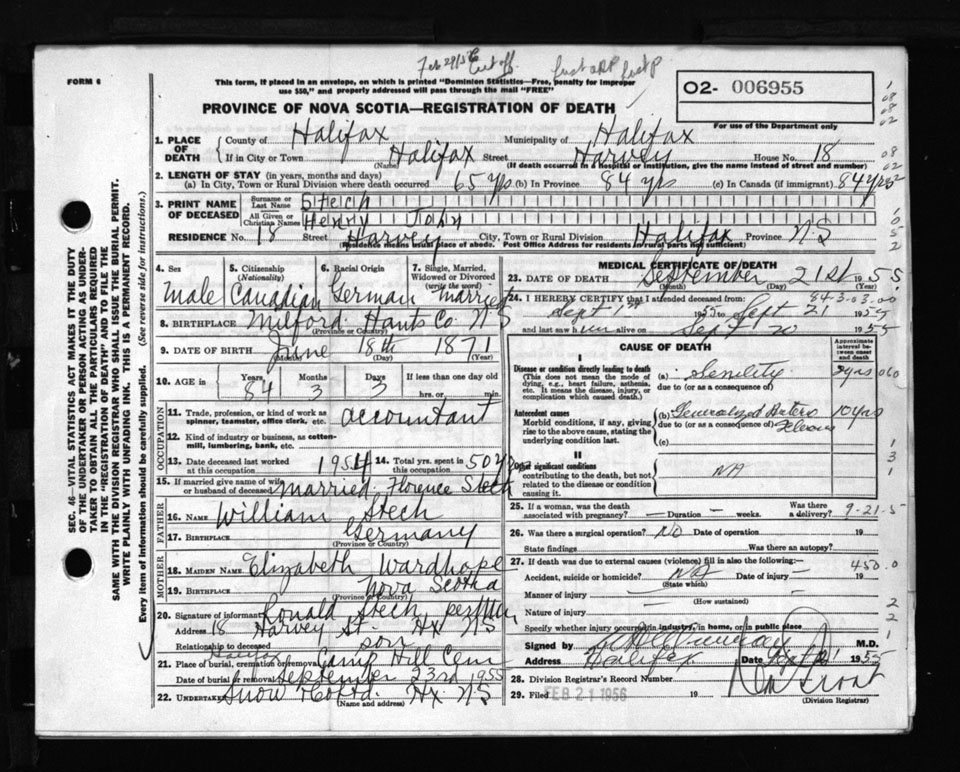 Feb 29/56 Cut off.
FORM 6
This form, if placed in an envelope, on which is printed "Dominion Statistics—Free, penalty for improper
use $50," and properly addressed will pass through the mail "FREE"
O2- 006955
PROVINCE OF NOVA SCOTIA—REGISTRATION OF DEATH
For use of the Department only
1. PLACE OF DEATH
County of Halifax Municipality of Halifax
If in City or Town Halifax Street Harvey House No. 18
(Name) (If death occurred in a hospital or institution, give the name instead of street and number)
2. LENGTH OF STAY (in years, months and days)
(a) In City, Town or Rural Division where death occurred 65 yrs (b) In Province 84 yrs (c) In Canada (if immigrant) 84 yrs
3. PRINT NAME OF DECEASED
Surname or Last Name Stech
All Given or Christian Names Henry John
RESIDENCE No. 18 Street Harvey City, Town or Rural Division Halifax Province N.S
(Residence means usual place of abode. Post Office Address for residents in rural parts not sufficient)
4. Sex Male
5. Citizenship (Nationality) Canadian
6. Racial Origin German
7. Single, Married, Widowed or Divorced (write the word) Married
8. BIRTHPLACE Milford Hants Co N-S
(Province or Country)
9. DATE OF BIRTH June 18th 1871
(Month) (Day) (Year)
10. AGE in Years 84 Months 3 Days 3 If less than one day old
hrs. or min.
OCCUPATION
11. Trade, profession, or kind of work as spinner, teamster, office clerk, etc. accountant
12. Kind of industry or business, as cotton-mill, lumbering, bank, etc.
13. Date deceased last worked at this occupation 1954 14. Total yrs. spent in this occupation 50 yrs
15. If married give name of wife or husband of deceased married Florence Stech
FATHER
16. NAME William Stech
17. BIRTHPLACE Germany
(Province or Country)
MOTHER
18. MAIDEN NAME Elizabeth Wardhope
19. BIRTHPLACE Nova Scotia
(Province or Country)
20. Signature of informant Ronald Stech per
Address 18 Harvey St. Hx NS
Relationship to deceased son
21. Place of burial, cremation or removal Halifax Camp Hill Cem
Date of burial or removal September 23rd 1955
22. Undertaker Snow & Co Ltd. Hx N.S
(Name and address)
MEDICAL CERTIFICATE OF DEATH
23. DATE OF DEATH September 21st 1955
(Month) (Day)
24. I HEREBY CERTIFY that I attended deceased from:
843.03.00
Sept 1st 1955 to Sept 21 1955
and last saw him alive on Sept 20 1955
CAUSE OF DEATH
Approximate interval between onset and death
I
Disease or condition directly leading to death
(This does not mean the mode of dying, e.g., heart failure, asthenia, etc. It means the disease, injury, or complication which caused death.)
(a) Senility
due to (or as a consequence of)
Antecedent causes
Morbid conditions, if any, giving rise to the above cause, stating the underlying condition last.
(b) Generalized Arterio Sclerosis 10 yrs
due to (or as a consequence of)
(c)
II
Other significant conditions
contributing to the death, but not related to the disease or condition causing it.
NA
25. If a woman, was the death associated with pregnancy? — Duration — weeks. Was there a delivery? 9-21-5
26. Was there a surgical operation? NO Date of operation 19
State findings Was there an autopsy?
27. If death was due to external causes (violence) fill in also the following:— 450.0
Accident, suicide or homicide? NA Date of injury 19
(State which)
Manner of injury
(How sustained)
Nature of injury
Specify whether injury occurred in industry, in home, or in public place
Signed by M.D.
Address Halifax Date Sept 21 1955
28. Division Registrar's Record Number
29. Filed FEB 21 1956
(Division Registrar)
SEC. 46—VITAL STATISTICS ACT MAKES IT THE DUTY
OF THE UNDERTAKER OR PERSON ACTING AS UNDER-
TAKER TO OBTAIN ALL THE PARTICULARS REQUIRED
IN THE "REGISTRATION OF DEATH" AND TO FILE THE
SAME WITH THE DIVISION REGISTRAR WHO SHALL ISSUE THE BURIAL PERMIT.
WRITE PLAINLY WITH UNFADING INK. THIS IS A PERMANENT RECORD.
Every item of Information should be carefully supplied. (See reverse side for instructions.)